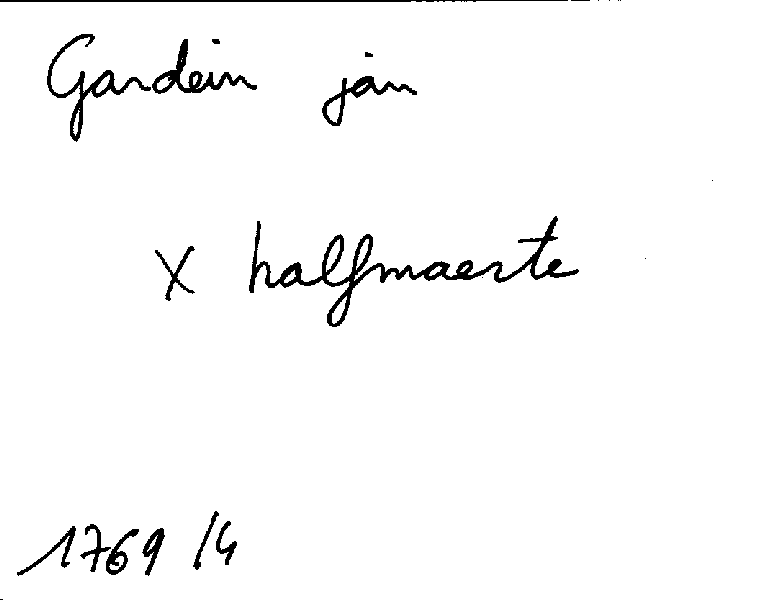 Gardein jan
X halfmaerte
1769 /4